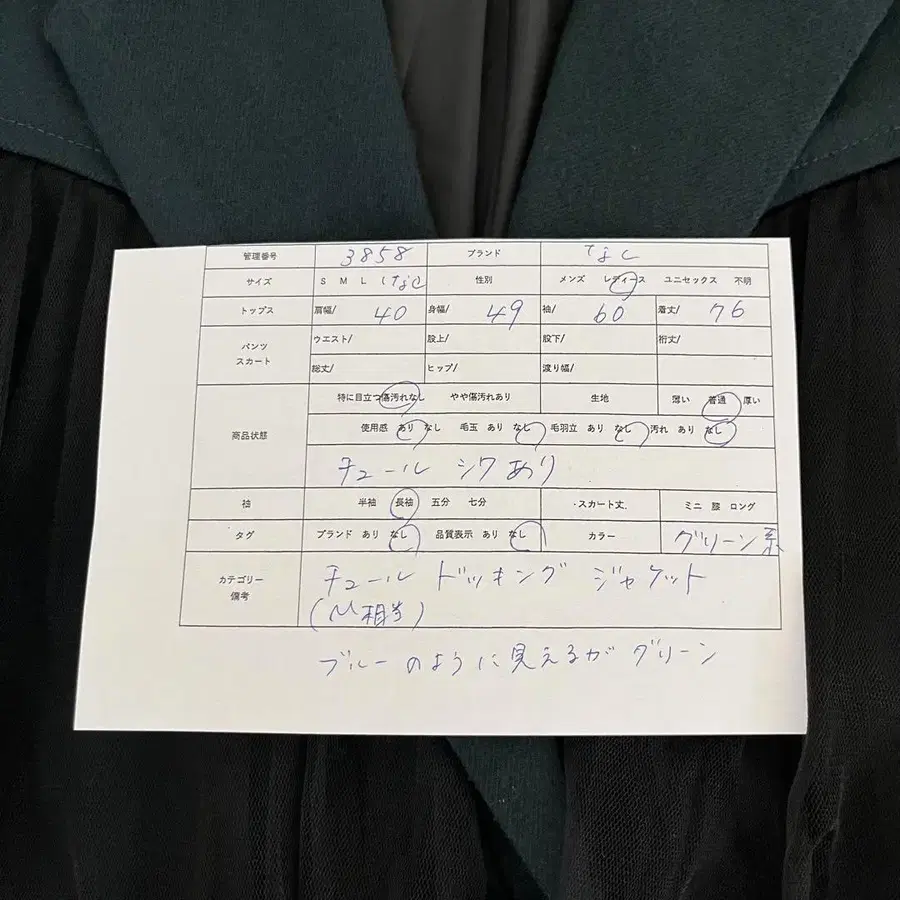 管理番号 3858 ブランド なし
サイズ S M L (なし 性別 メンズ レディース ユニセックス 不明
トップス 肩幅/ 40 身幅/ 49 袖/ 60 着丈/ 76
パンツ スカート ウエスト/ 股上/ 股下/ 裄丈/
総丈/ ヒップ/ 渡り幅/
商品状態 特に目立つ傷汚れなし やや傷汚れあり 生地 薄い 普通 厚い
使用感 あり なし 毛玉 あり なし 毛羽立 あり なし 汚れ あり なし
チュール シワあり
袖 半袖 長袖 五分 七分 ・スカート丈. ミニ 膝 ロング
タグ ブランド あり なし 品質表示 あり なし カラー グリーン系
カテゴリー 備考 チュール ドッキング ジャケット
(M相当)
ブルーのように見えるがグリーン